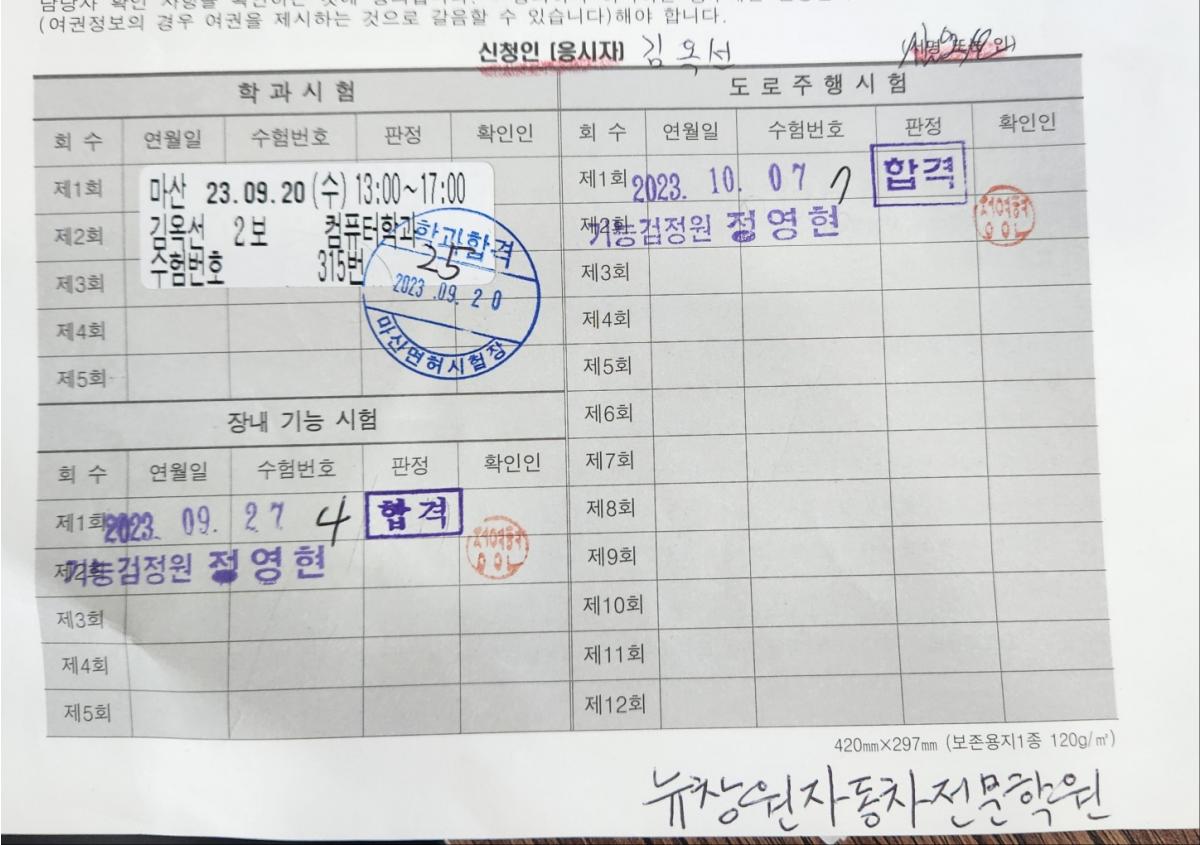 (여권정보의 경우 여권을 제시하는 것으로 갈음할 수 있습니다)해야 합니다.
신청인 (응시자) 김옥선 (서명 또는 인)
학 과 시 험
회 수 연월일 수험번호 판정 확인인
제1회
마산 23.09.20 (수) 13:00~17:00
제2회
김옥선 2보 컴퓨터학과
수험번호 315번
학과합격
25
2023.09.20
마산면허시험장
제3회
제4회
제5회
장내 기능 시험
회 수 연월일 수험번호 판정 확인인
제1회 2023. 09. 27 4 합격
제2회 기능검정원 정영현
제3회
제4회
제5회
도 로 주 행 시 험
회 수 연월일 수험번호 판정 확인인
제1회 2023. 10. 07 7 합격
제2회 기능검정원 정영현
제3회
제4회
제5회
제6회
제7회
제8회
제9회
제10회
제11회
제12회
420mm×297mm (보존용지1종 120g/㎡)
뉴창원자동차전문학원